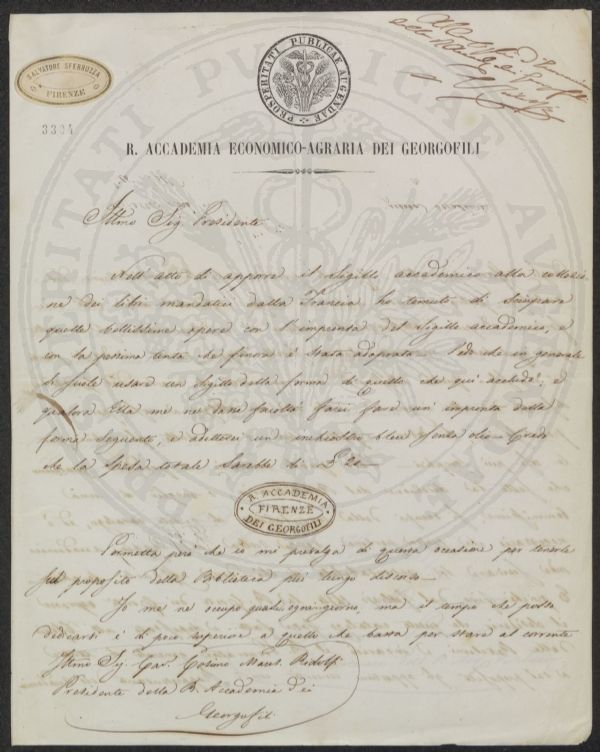 SALVATORE SFERRUZZA
FIRENZE
PROSPERITATI PUBLICAE AUGENDAE
3304
R. ACCADEMIA ECONOMICO-AGRARIA DEI GEORGOFILI
Illmo Sig. Presidente
Nell'atto di apporre il sigillo accademico alla collezio
ne dei libri mandatici dalla Francia ho temuto di sciupare
quelle bellissime opere con l'impronta del sigillo accademico, e
con la pessima tinta che finora è stata adoprata. Vedo che in generale
si suole usare un sigillo della forma di quello che qui accludo, e
qualora Ella me ne dasse facoltà farei fare un'impronta della
forma seguente, e adotterei un inchiostro bleu senza olio. Credo
che la spesa totale sarebbe di £ 20.
R. ACCADEMIA
FIRENZE
DEI GEORGOFILI
Permetta però che io mi prevalga di questa occasione per tenerle
sul proposito della Biblioteca più lungo discorso.
Io me ne occupo quasi ogni giorno, ma il tempo che posso
dedicarvi è di poco superiore a quello che basta per stare al corrente
Illmo Sig. Cav. Cosimo March. Ridolfi
Presidente della R. Accademia dei
Georgofili